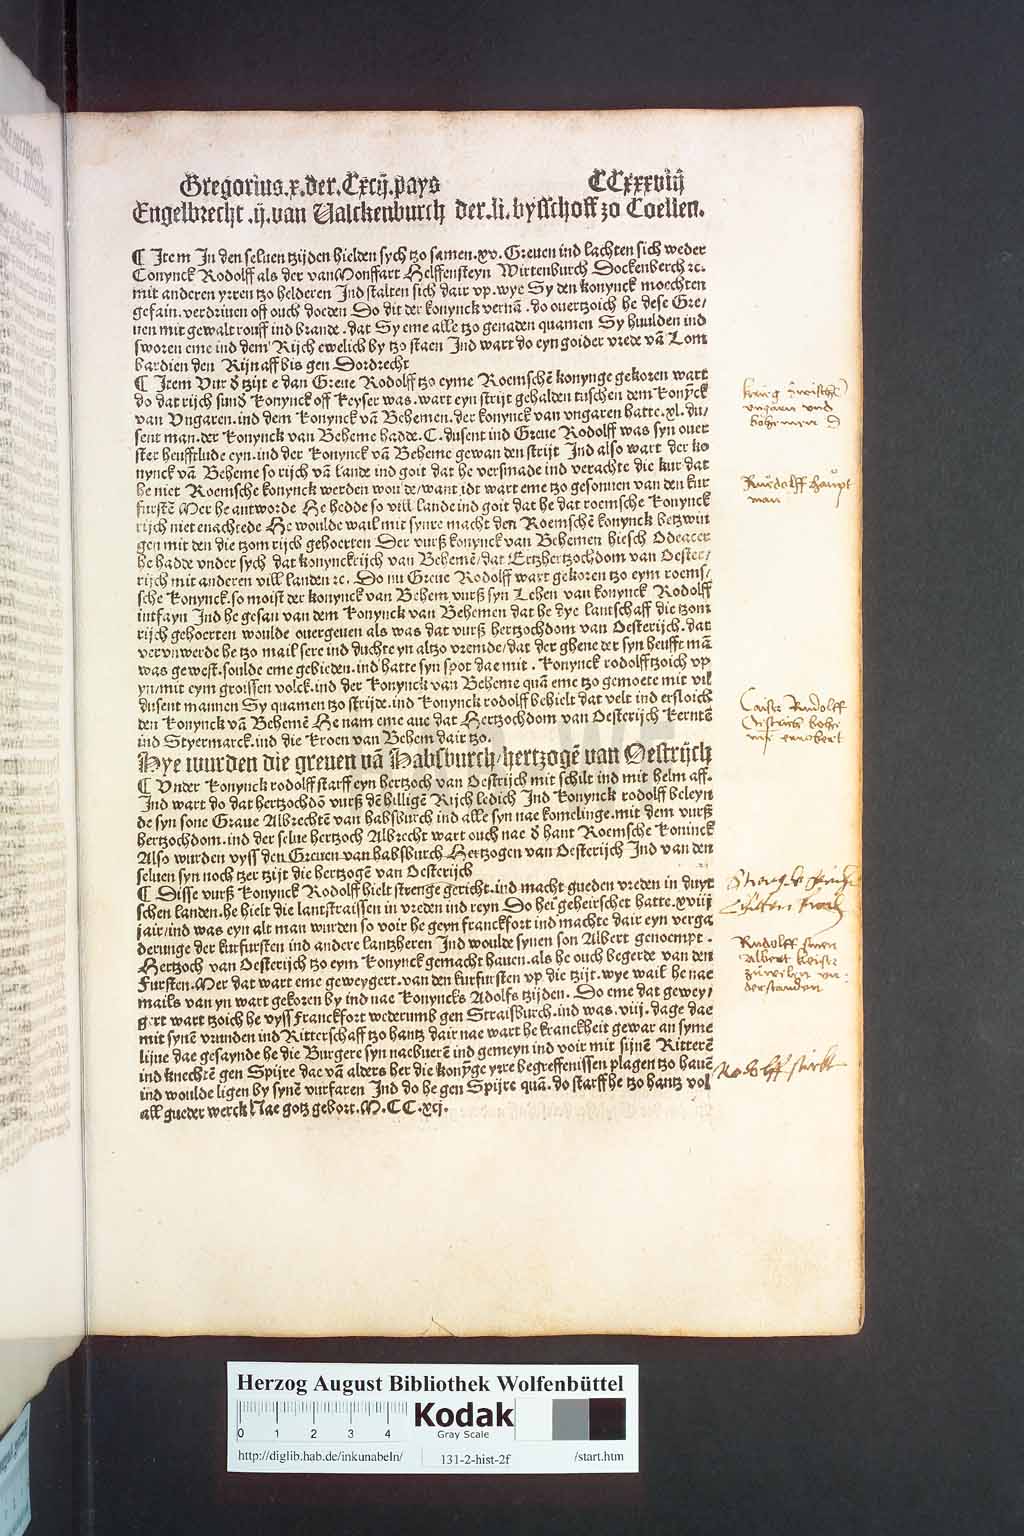 Gregorius.x.der.Cxcij.pays CCxxxviij
Engelbrecht .ij.van Valckenburch der.li.bysschoff zo Coellen.
¶ Item In den seluen tzijden hielden sych tzo samen.xv.Greuen ind lachten sich weder
Conynck Rodolff als der van Monffart Helffensteyn Wirtenburch Dockenberch ⁊c.
mit anderen yrren tzo helderen Ind stalten sich dair vp.wye Sy den konynck moechten
gefain.verdriuen off ouch doeden Do dit der konynck vernā.do ouertzoich he dese Gre/
uen mit gewalt rouff ind brande.dat Sy eme alle tzo genaden quamen Sy huulden ind
sworen eme ind dem Rijch ewelich by tzo staen Ind wart do eyn goider vrede vā Lom
bardien den Rijn aff bis gen Dordrecht
¶ Item Vur d̄ tzijt e dan Greue Rodolff tzo eyme Roemschē konynge gekoren wart
do dat rijch sund konynck off keyser was.wart eyn strijt gehalden tuschen dem konȳck
van Vngaren.ind dem konynck vā Behemen.der konynck van vngaren hatte.xl.du/
sent man.der konynck van Beheme hadde.C.dusent ind Greue Rodolff was syn ouer
ster heufftlude eyn.ind der konynck vā Beheme gewan den strijt Ind also wart der ko
nynck vā Beheme so rijch vā lande ind goit dat he versmade ind verachte die kur dat
he niet Roemsche konynck werden woulde/want idt wart eme tzo gesonnen van den kur
furstē Mer he antworde He hedde so vill lande ind goit dat he dat roemsche konynck
rijch niet enachtede He woulde wail mit synre macht den Roemschē konynck betzwin
gen mit den die tzom rijch gehoerten Der vurß konynck van Behemen hiesch Odeacer
he hadde vnder sych dat konynckrijch van Behemē/dat Ertzhertzochdom van Oester/
rijch mit anderen vill landen ⁊c. Do nu Greue Rodolff wart gekoren tzo eym roems/
sche konynck.so moist der konynck van Behem vurß syn Lehen van konynck Rodolff
intfayn Ind he gesan van dem konynck van Behemen dat he dye lantschaff die tzom
rijch gehoerten woulde ouergeuen als was dat vurß hertzochdom van Oesterijch.dat
vervnwerde he tzo mail sere ind duchte yn altzo vremde/dat der ghene der syn heufft mā
was gewest.soulde eme gebieden.ind hatte syn spot dae mit. konynck rodolff tzoich vp
yn/mit eym groissen volck.ind der konynck van Beheme quā eme tzo gemoete mit vil
dusent mannen Sy quamen tzo strijde.ind konynck rodolff behielt dat velt ind ersloich
den konynck vā Behemē He nam eme aue dat Hertzochdom van Oesterijch kerntē
ind Styermarck.ind die kroen van Behem dair tzo.
Hye wurden die greuen vā Habsburch/hertzogē van Oestrijch
¶ Vnder konynck rodolff starff eyn hertzoch van Oestrijch mit schilt ind mit helm aff.
Ind wart do dat hertzochdō vurß dē hilligē Rijch ledich Ind konynck rodolff beleyn
de syn sone Graue Albrechtē van habsburch ind alle syn nae komelinge.mit dem vurß
hertzochdom.ind der selue hertzoch Albrecht wart ouch nae d̄ hant Roemsche Koninck
Also wurden vyss den Greuen van habsburch Hertzogen van Oesterijch Ind van den
seluen syn noch tzer tzijt die hertzogē van Oesterijch
¶ Disse vurß konynck Rodolff hielt strenge gericht.ind macht gueden vreden in duyt
schen landen.he hielt die lantstraissen in vreden ind reyn Do hei geheirschet hatte.xviij
jair/ind was eyn alt man wurden so voir he geyn franckfort ind machte dair eyn verga
derunge der kurfursten ind andere lantzheren Ind woulde synen son Albert genoempt.
Hertzoch van Oesterijch tzo eym konynck gemacht hauen.als he ouch begerde van den
Fursten.Mer dat wart eme geweygert.van den kurfursten vp die tzijt.wye wail he nae
mails van yn wart gekoren by ind nae konyncks Adolfs tzijden. Do eme dat gewey/
gert wart tzoich he vyss Franckfort wederumb gen Straisburch.ind was.viij.dage dae
mit synē vrunden ind Ritterschaff tzo hantz dair nae wart he kranckheit gewar an syme
lijue dae gesaynde he die Burgere syn naebuerē ind gemeyn ind voir mit sijnē Ritterē
ind knechtē gen Spijre dae vā alders her die konȳge yrre begreffenissen plagen tzo hauē
ind woulde ligen by synē vurfaren Ind do he gen Spijre quā.do starff he tzo hantz vol
all gueder werck Nae gotz gebort.M.CC.xcj.
krieg zwischē
vngarn vnd
böhemen
Rudolff haupt
man
Caiser Rudolff
Rudolff sinen
Albert keiser
zuwelen vn:
derstanden
Rodolff stirbt
Herzog August Bibliothek Wolfenbüttel
0 1 2 3 4
Kodak
Gray Scale
http://diglib.hab.de/inkunabeln/ 131-2-hist-2f /start.htm